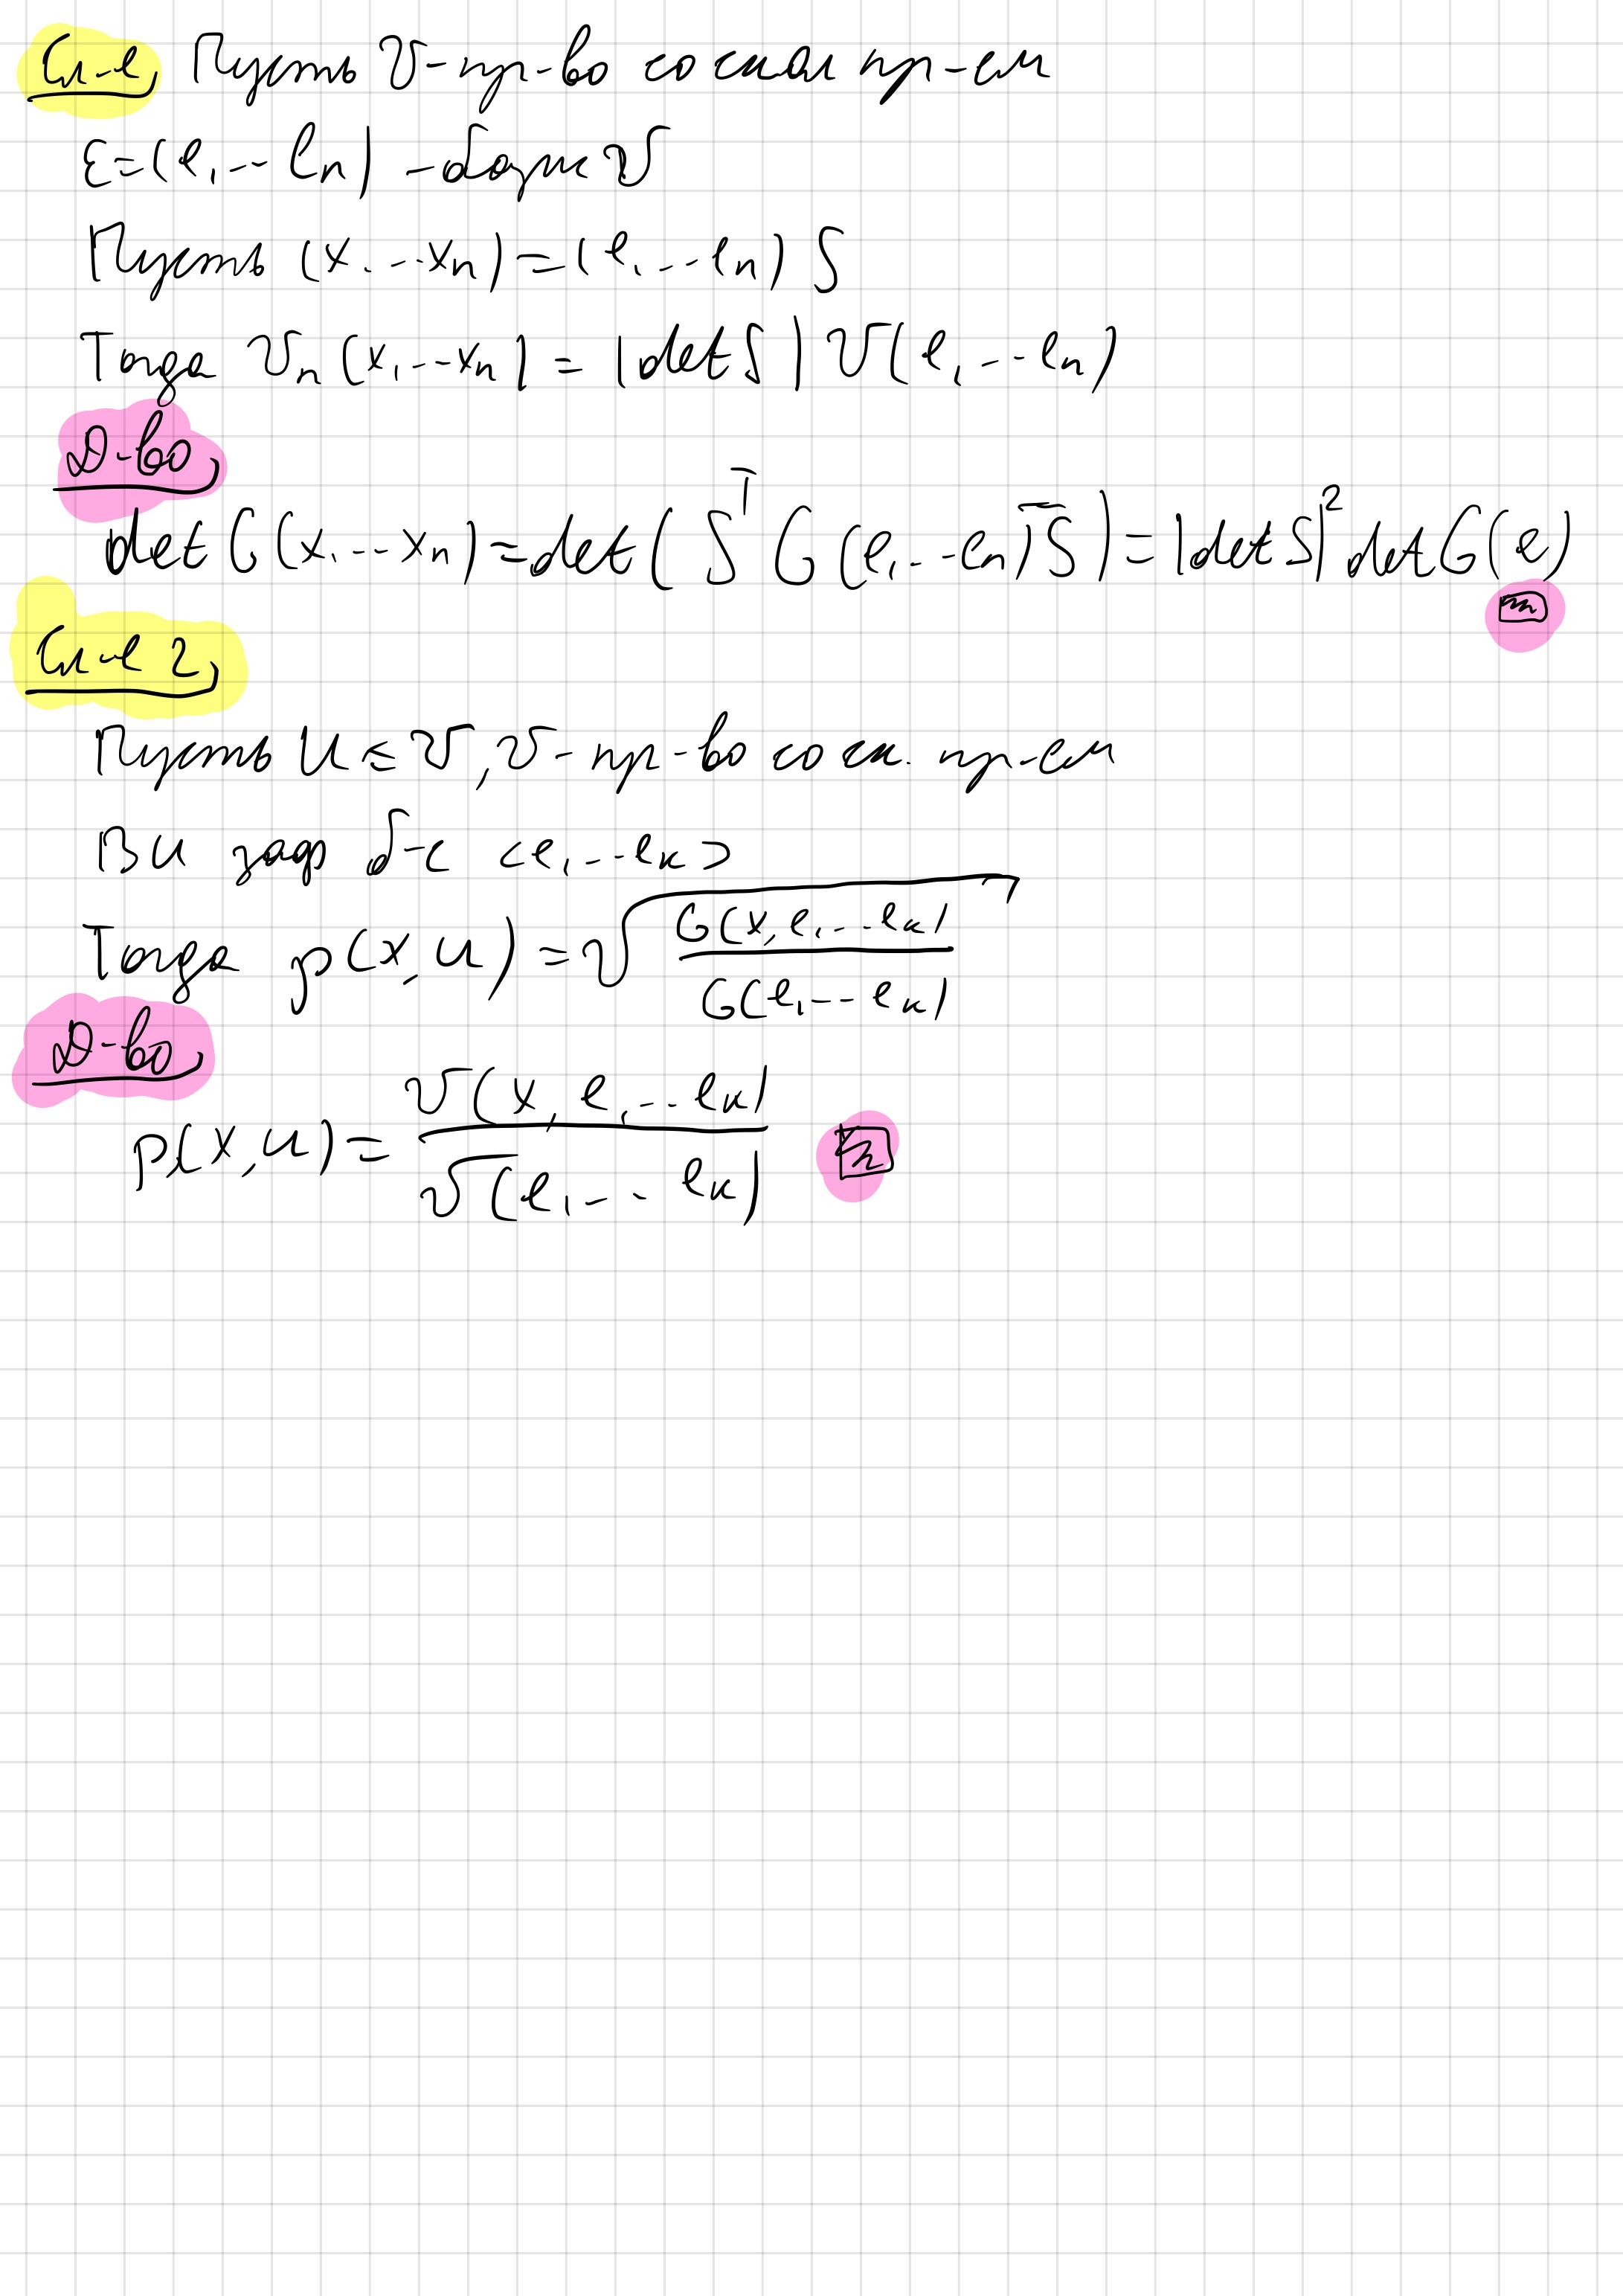 Сл-е Пусть V-пр-во со скал пр-ем
ε=(e₁...eₙ) - базис V
Пусть (x₁...xₙ)=(e₁...eₙ) S
Тогда Vₙ(x₁...xₙ) = |det S| V(e₁...eₙ)
Д-во
det G(x₁...xₙ)=det(Sᵀ G(e₁...eₙ) S̅)=|det S|² det G(e)
Сл-е 2
Пусть U ≤ V, V- пр-во со ск. пр-ем
В U задр б-с <e₁...eₖ>
Тогда ρ(x,U) = √(G(x,e₁...eₖ)/G(e₁...eₖ))
Д-во
ρ(x,U)= V(x,e₁...eₖ)/V(e₁...eₖ)